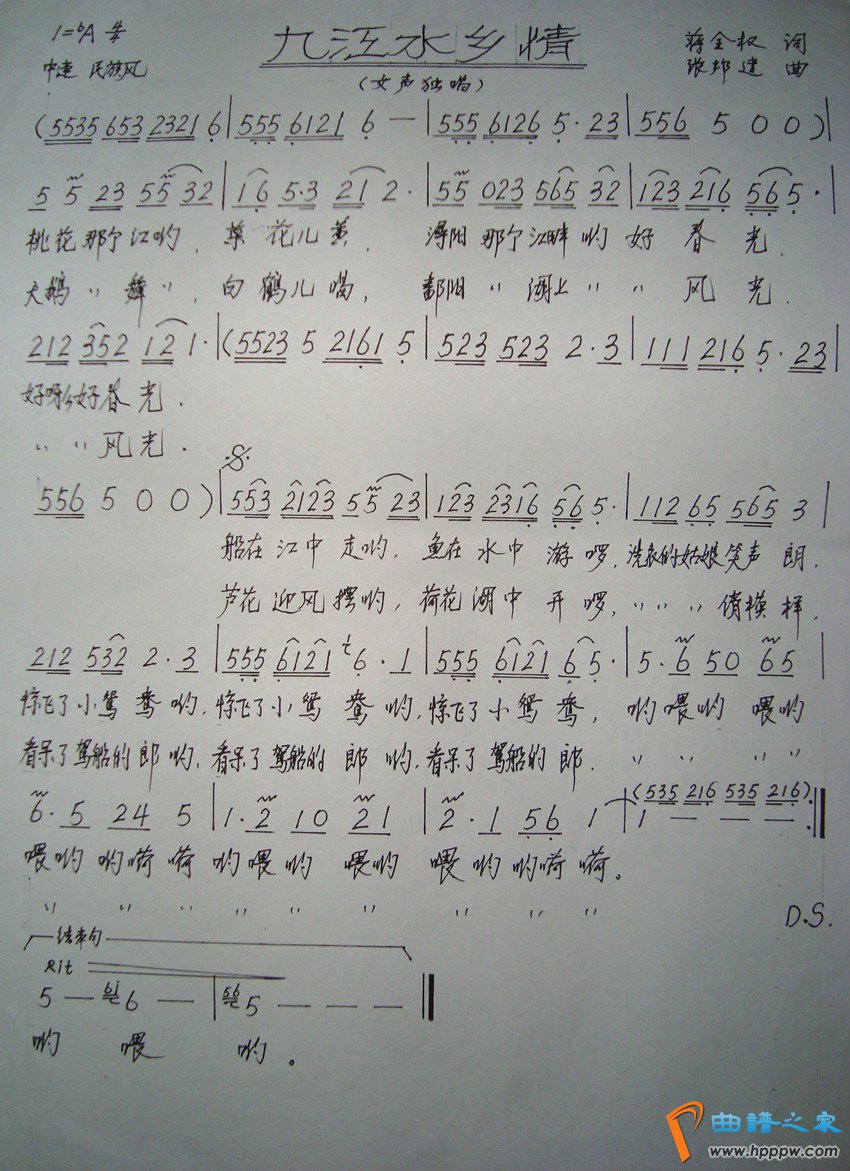 九江水乡情
1=♭A
中速 民族风
(女声独唱)
蒋全权 词
张邦建 曲
(5535 653 2321 6 | 555 6121 6 — | 555 6126 5· 23 | 556 5 0 0)|
5 5 23 55 32 | 16 5·3 21 2· | 55 023 565 32 | 123 216 565· |
桃花那个江哟, 草花儿黄, 浔阳那个江畔哟好春光.
大鹅〃舞〃, 白鹤儿唱, 鄱阳〃湖上〃〃风光.
212 352 12 1· | (5523 5 2161 5 | 523 523 2·3 | 111 216 5·23 |
好呀么好春光.
〃〃风光.
556 5 0 0 ) | 553 2123 55 23 | 123 2316 56 5· | 112 65 565 3 |
船在江中走哟, 鱼在水中游啰, 洗衣的姑娘笑声朗,
芦花迎风摆哟, 荷花湖中开啰, 〃〃〃俏模样,
212 532 2·3 | 555 6121 6·1 | 555 6121 65· | 5·6 50 65 |
惊飞了小鸳鸯哟, 惊飞了小鸳鸯哟, 惊飞了小鸳鸯, 哟喂哟喂哟
看呆了驾船的郎哟, 看呆了驾船的郎哟, 看呆了驾船的郎. 〃〃〃〃
6·5 24 5 | 1·2 10 21 | 2·1 56 1 | (535 216 535 216) 1 — — — :‖
喂哟哟嗬嗬哟喂哟喂哟喂哟哟嗬嗬。
〃〃〃〃〃〃〃〃〃〃
D.S.
结束句
Rit
5 — 6 — | 56 5 — — — ‖
哟喂哟。
曲谱之家
www.hppw.com